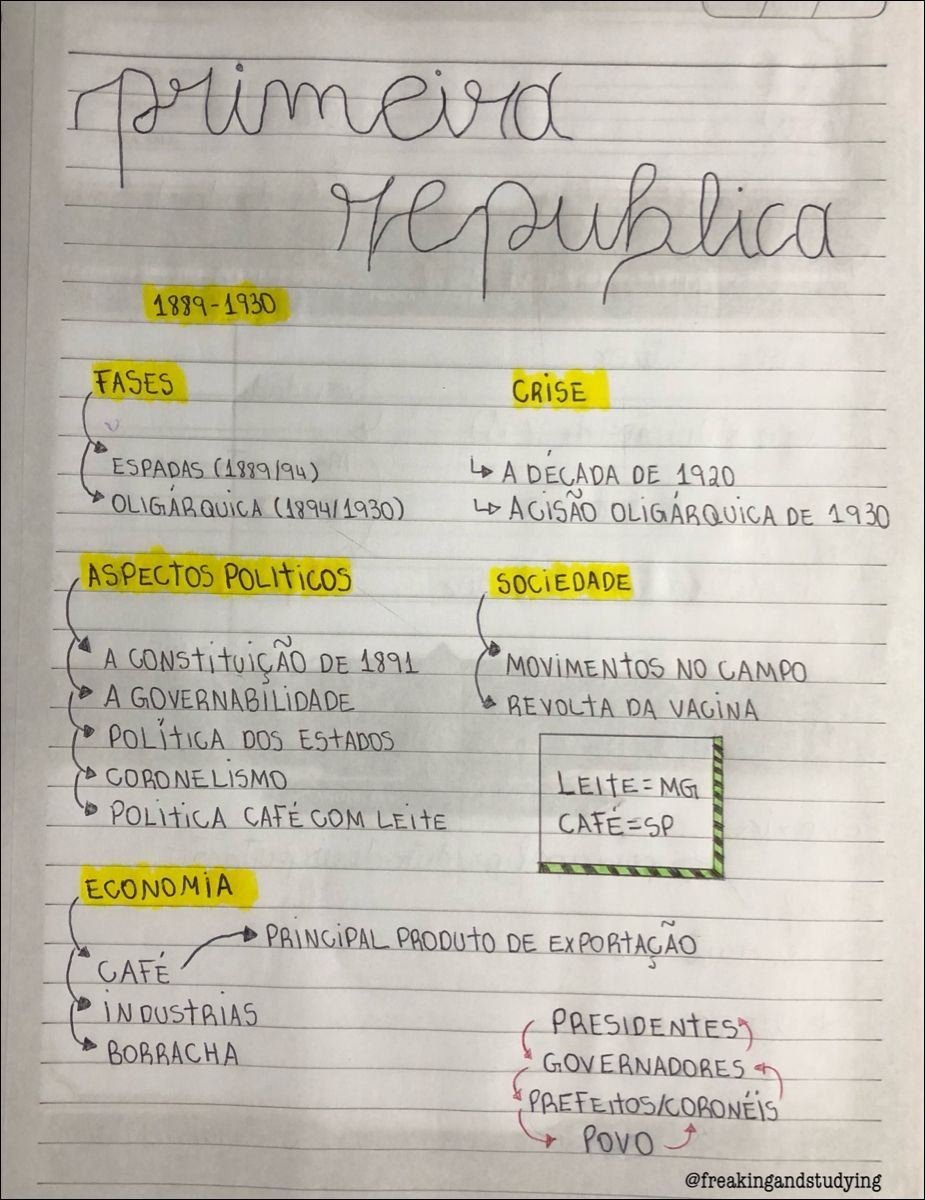 primeira
republica
1889-1930
FASES
ESPADAS (1889/94)
OLIGÁRQUICA (1894/1930)
CRISE
A DÉCADA DE 1920
A CISÃO OLIGÁRQUICA DE 1930
ASPECTOS POLITICOS
A CONSTITUIÇÃO DE 1891
A GOVERNABILIDADE
POLÍTICA DOS ESTADOS
CORONELISMO
POLITICA CAFÉ COM LEITE
SOCIEDADE
MOVIMENTOS NO CAMPO
REVOLTA DA VACINA
LEITE=MG
CAFÉ=SP
ECONOMIA
CAFÉ
PRINCIPAL PRODUTO DE EXPORTAÇÃO
INDUSTRIAS
BORRACHA
PRESIDENTES
GOVERNADORES
PREFEITOS/CORONÉIS
POVO
@freakingandstudying